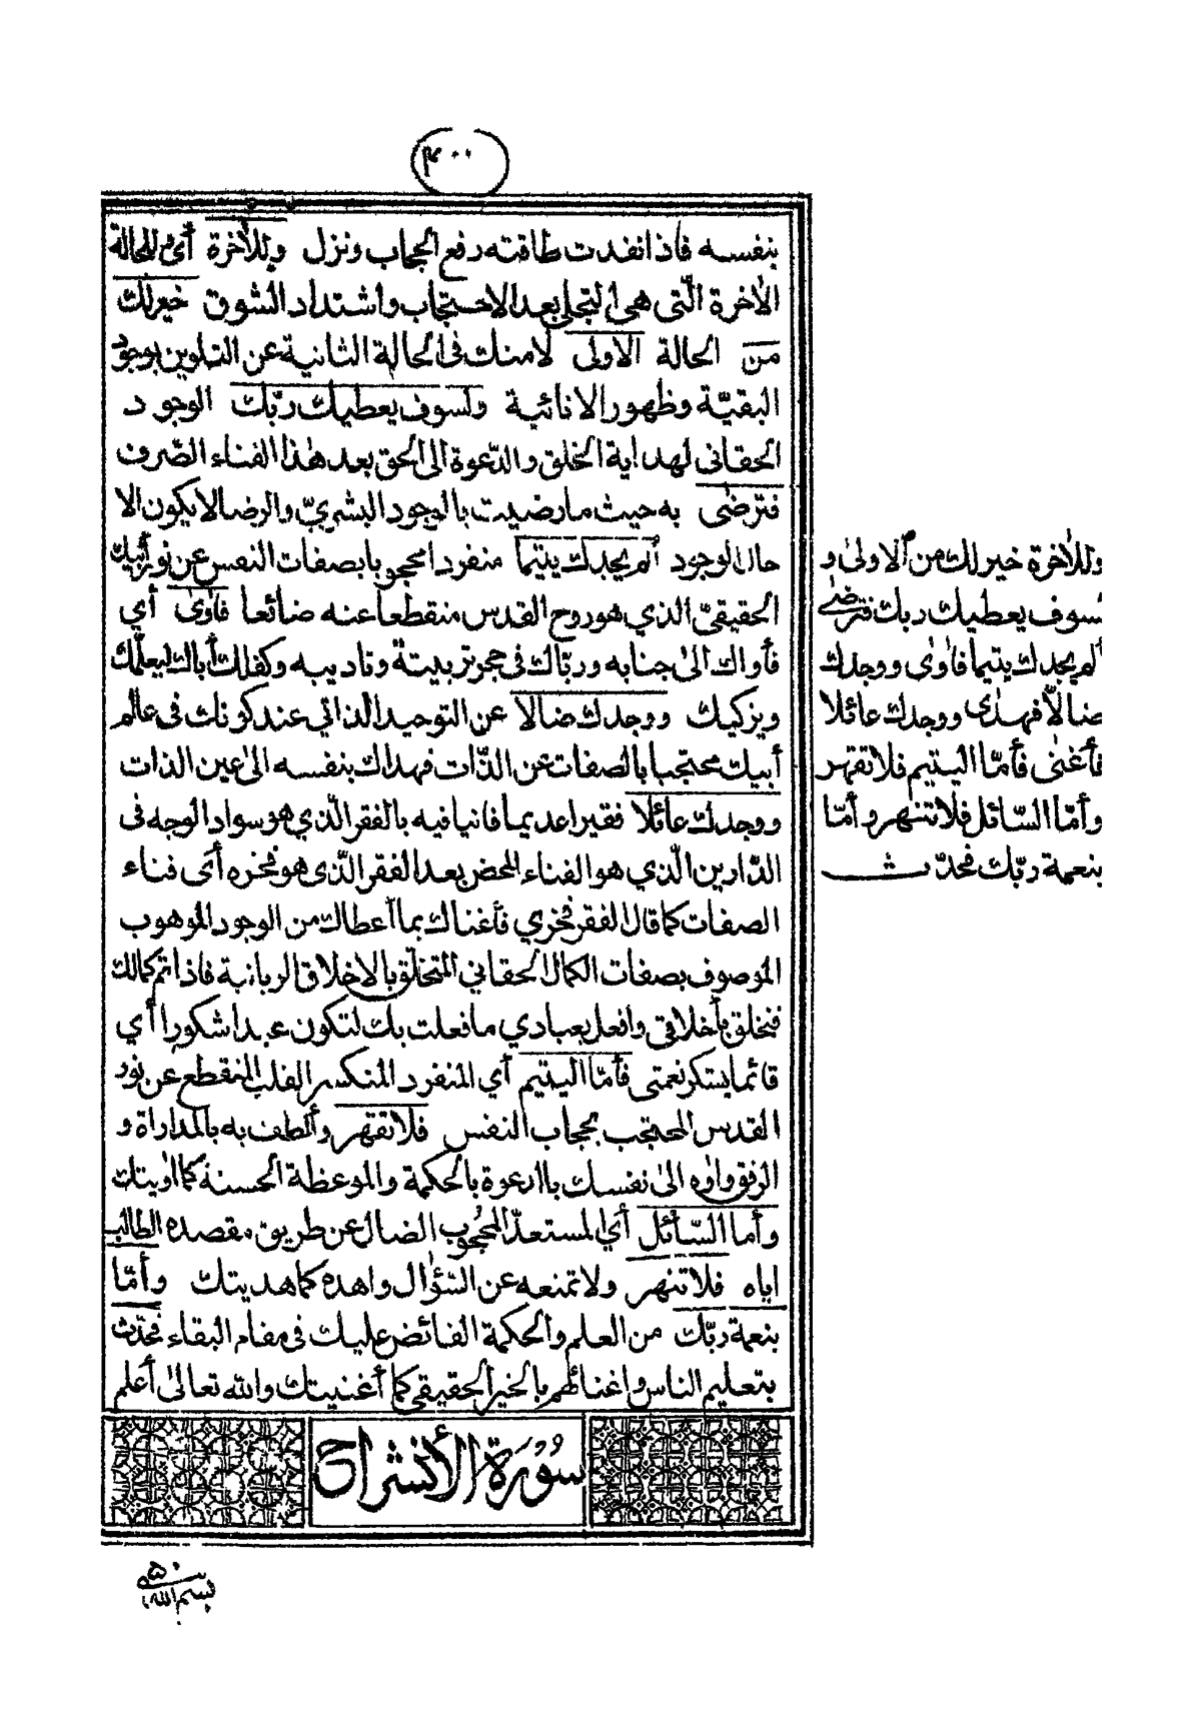 ٤٠٠
بنفسه فاذا نفدت طاقته رفع الحجاب ونزل وللأخرة أى للحالة
الأخرة الّتى هى التجلى بعد الاحتجاب واشتداد الشوق خير لك
من الحالة الاولى لامنك فى الحالة الثانية عن التلوين بوجود
البقيّة وظهور الانائية ولسوف يعطيك ربّك الوجود
الحقانى لهداية الخلق والدّعوة الى الحق بعد هٰذا الفناء الصّرف
فترضٰى به حيث ما رضيت بالوجود البشريّ والرضا لا يكون الا
حال الوجود ألم يجدك يتيما منفردا محجوبا بصفات النفس عن نور أبيك
الحقيقيّ الذي هو روح القدس منقطعا عنه ضائعا فآوىٰ أي
فأواك الىٰ جنابه وربّاك فى حجر تربيته وتاديبه وكفلك أباك ليعلّمك
ويزكيك ووجدك ضالا عن التوحيد الذاتي عند كونك فى عالم
أبيك محتجبا بالصفات عن الذّات فهداك بنفسه الىٰ عين الذات
ووجدك عائلا فقيرا عديما فانيا فيه بالفقر الّذي هو سواد الوجه فى
الدّارين الّذي هو الفناء المحض بعد الفقر الّذى هو فخره أى فناء
الصفات كما قال الفقر فخري فأغناك بما أعطاك من الوجود الموهوب
الموصوف بصفات الكمال الحقاني المتخلّق بالاخلاق الربانية فاذا تم كمالك
فتخلق بأخلاقى وافعل بعبادي ما فعلت بك لتكون عبدا شكورا أي
قائما بشكر نعمتى فأمّا اليتيم أي المنفرد المنكسر القلب المنقطع عن نور
القدس المحتجب بحجاب النفس فلا تقهر وألطف به بالمداراة و
الرفق واوه الىٰ نفسك بالدعوة بالحكمة والموعظة الحسنة كما اويتك
وأما السّائل أي المستعدّ المحجوب الضال عن طريق مقصده الطالب
اياه فلا تنهر ولا تمنعه عن السّؤال واهده كما هديتك وأمّا
بنعمة ربّك من العلم والحكمة الفائض عليك فى مقام البقاء فحدّث
بتعليم الناس واغنائهم بالخير الحقيقى كما أغنيتك والله تعالىٰ أعلم
وللأخرة خير لك من الاولىٰ و
لسوف يعطيك ربك فترضى
ألم يجدك يتيما فاوٰى ووجدك
ضالّا فهدٰى ووجدك عائلا
فأغنٰى فأمّا اليتيم فلا تقهر
وأمّا السّائل فلا تنهر وأمّا
بنعمة ربّك فحدّث
سُورَة الأنشراح
بسم الله